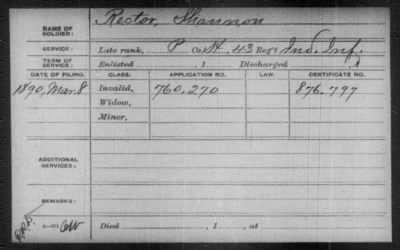 NAME OF SOLDIER: Rector, Shannon
SERVICE: Late rank, P Co. H, 43 Reg't Ind. Inf.
TERM OF SERVICE: Enlisted , 1 Discharged , 1
DATE OF FILING. CLASS. APPLICATION NO. LAW. CERTIFICATE NO.
1890, Mar. 8 Invalid, 760.270 876.797
Widow,
Minor,
ADDITIONAL SERVICES:
REMARKS:
Died , 1 , at